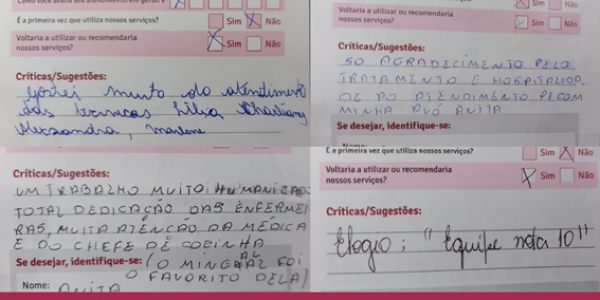 É a primeira vez que utiliza nossos serviços? Sim Não
Voltaria a utilizar ou recomendaria
nossos serviços? Sim Não
Críticas/Sugestões:
Gostei muito do atendimento
das tecnicas Lilia
Alexsandra, Marlene
Sim Não
nossos serviços? Sim Não
Críticas/Sugestões:
SO AGRADECIMENTO PELO
TRATAMENTO E HOSPITALIDA
DE NO ATENDIMENTO P/COM
MINHA AVÓ ANITA
Se desejar, identifique-se:
Críticas/Sugestões:
UM TRABALHO MUITO HUMANIZADO
TOTAL DEDICAÇÃO DAS ENFERMEI
RAS, MUITA ATENÇÃO DA MÉDICA
E DO CHEFE DE COZINHA
Se desejar, identifique-se: (O MINGAL FOI
O FAVORITO DELA)
Nome: ANITA
É a primeira vez que utiliza nossos serviços? Sim Não
Voltaria a utilizar ou recomendaria
nossos serviços? Sim Não
Críticas/Sugestões:
Elogio: "Equipe nota 10!"